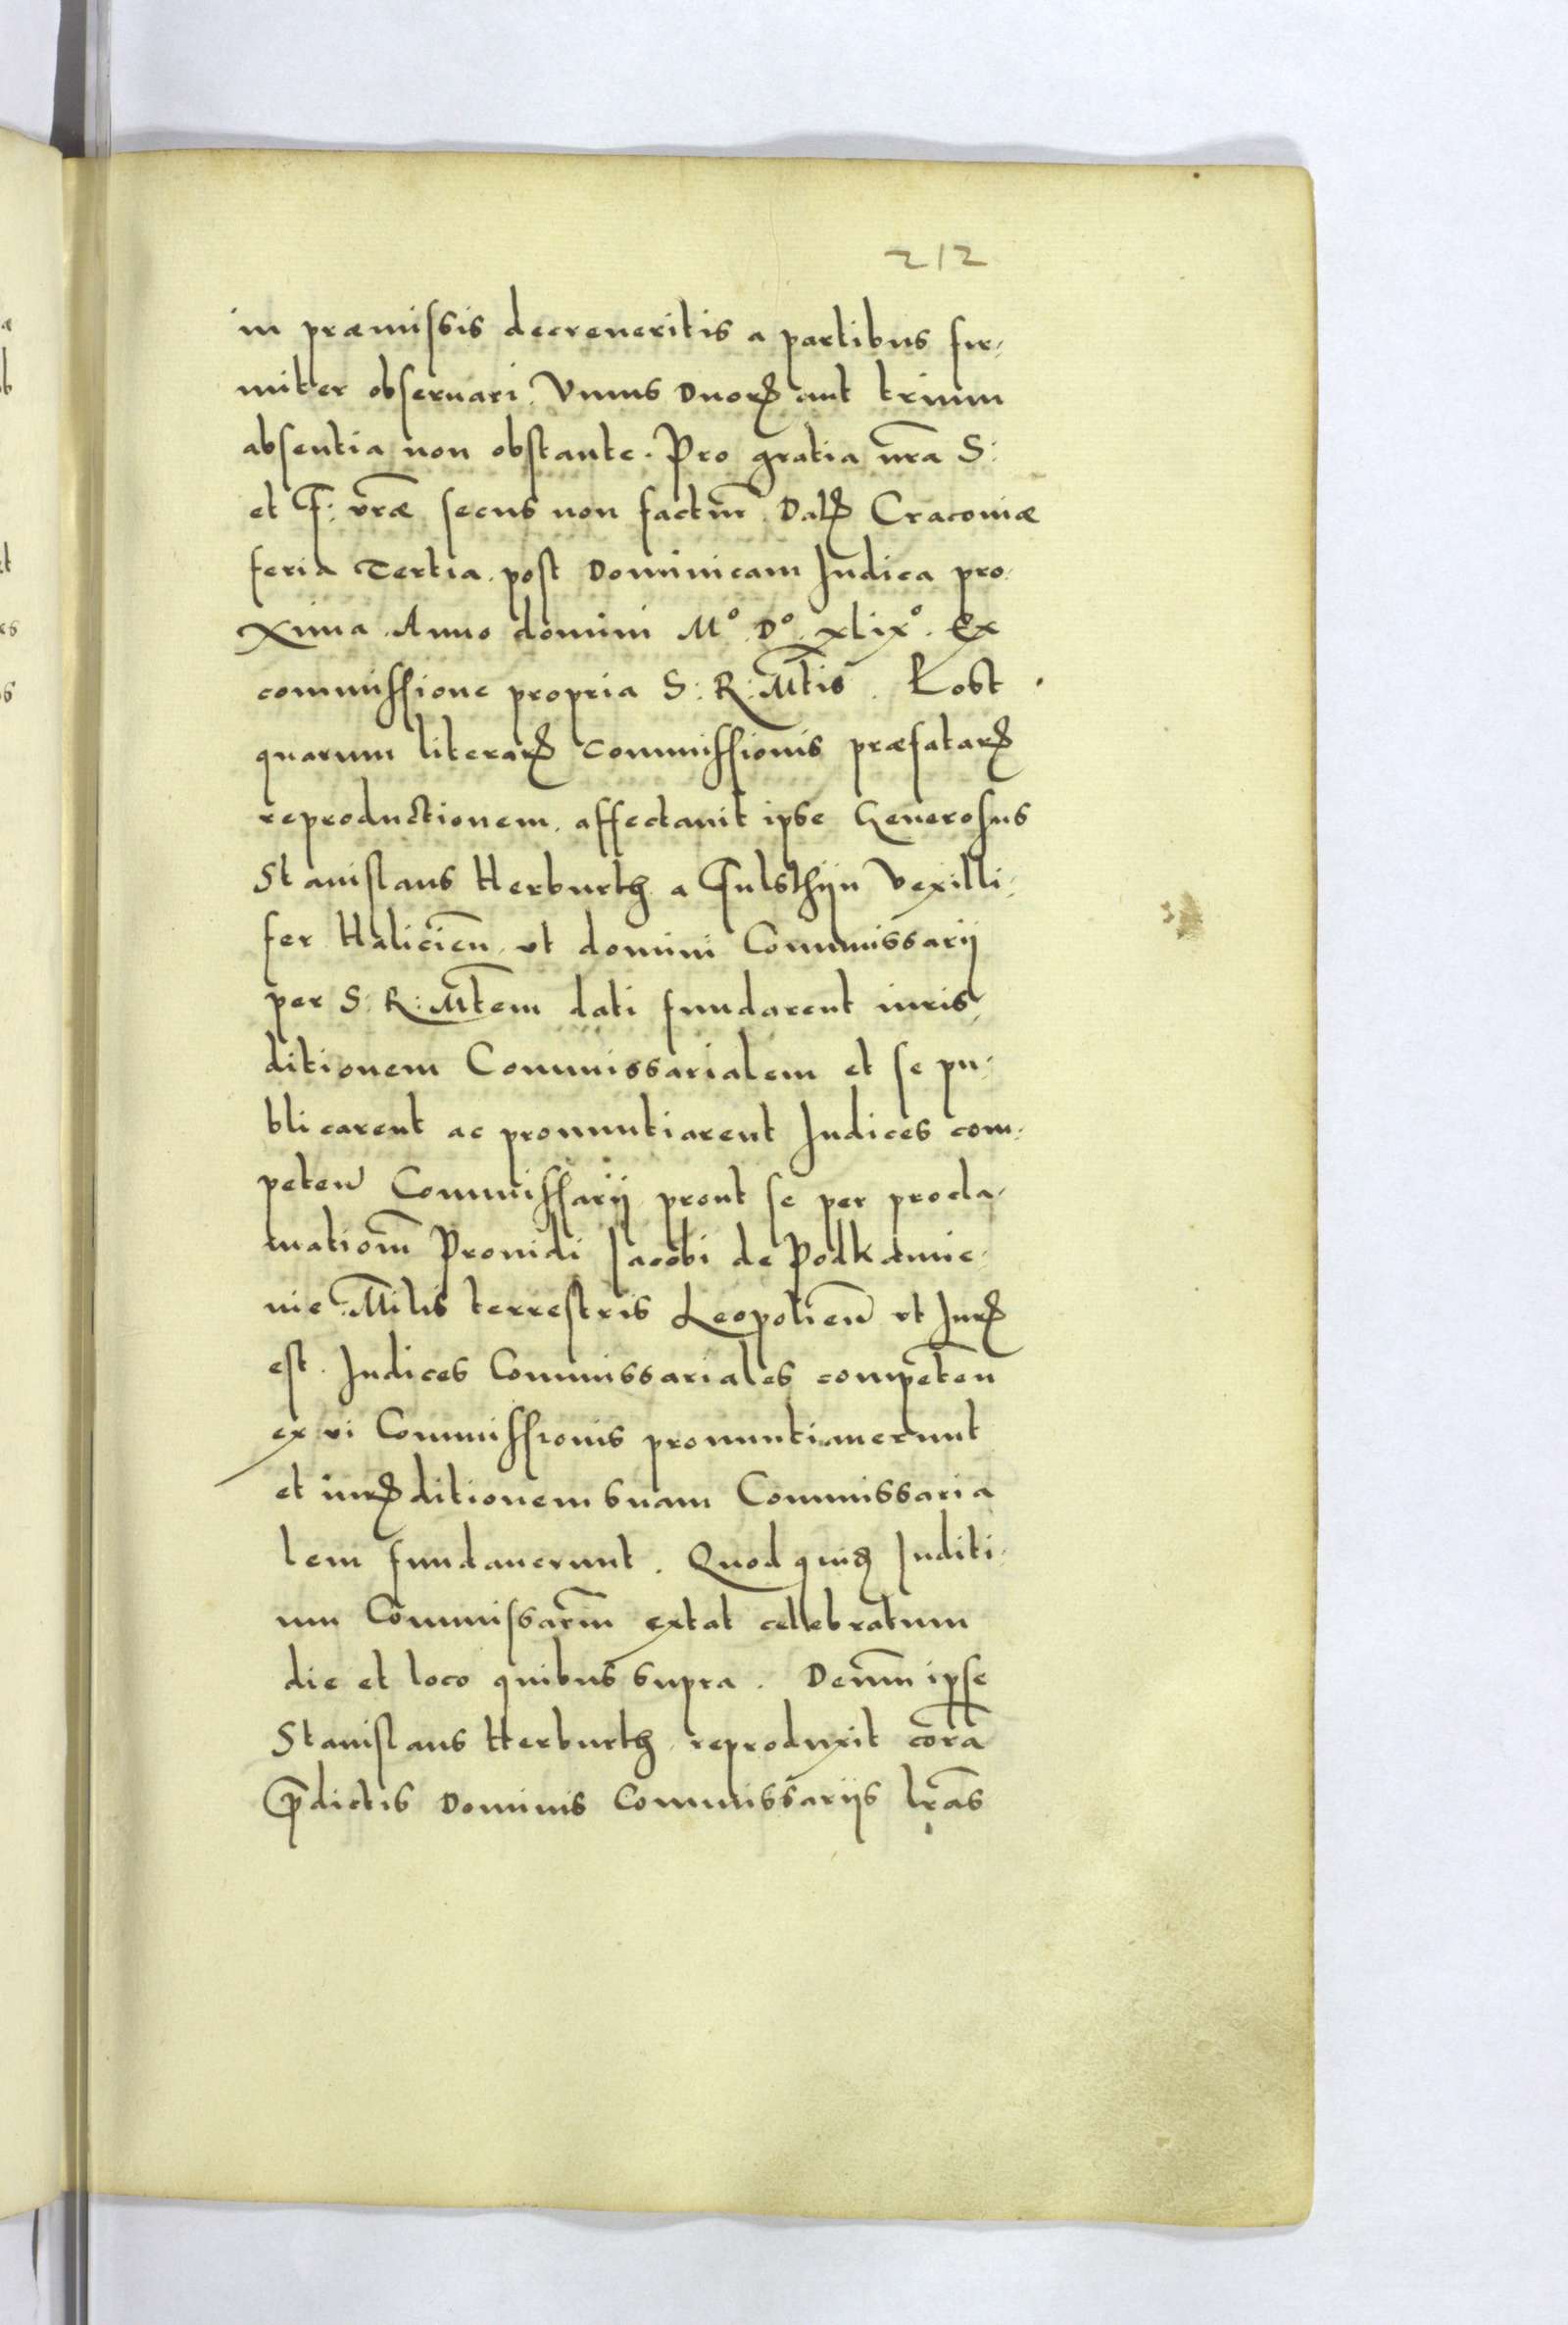 212
in præmissis decreueritis a partibus fir-
miter obseruari. Vnius Duorꝝ aut trium
absentia non obstante. Pro gratia nr̄a S:
et F: vr̄æ secus non factur̄ Datꝝ Cracouiæ
feria Tertia post Dominicam Iudica pro
xima. Anno domini Mº. Dº. xlixº. Ex
commissione propria S: R: Mt̄is. Post
quarum literarꝝ Commissionis præfatarꝝ
reproductionem, affectauit ipse Generosus
Stanislaus Herburth a Fulsthijn Vexilli-
fer Halicien̄ vt domini Commissarij
per S: R: Mt̄em dati fundarent iuris-
ditionem Commissarialem et se pu-
blicarent ac pronuntiarent Iudices com-
peten̄ Commissarij prout se per procla-
mationm̄ Prouidi Iacobi de Podkamie-
nie Mīlis terrestris Leopolien̄ vt Iurꝝ
est. Iudices Commissariales competen̄
ex vi Commissionis pronuntiauerunt
et iurꝝditionem suam Commissaria
lem fundauerunt. Quod quidē Iuditi-
um Commissarm̄ extat cellebratum
die et loco quibus supra. Demm̄ ipse
Stanislaus Herburth reproduxit cora̅
p̄dictis Dominis Commissariis lr̄as